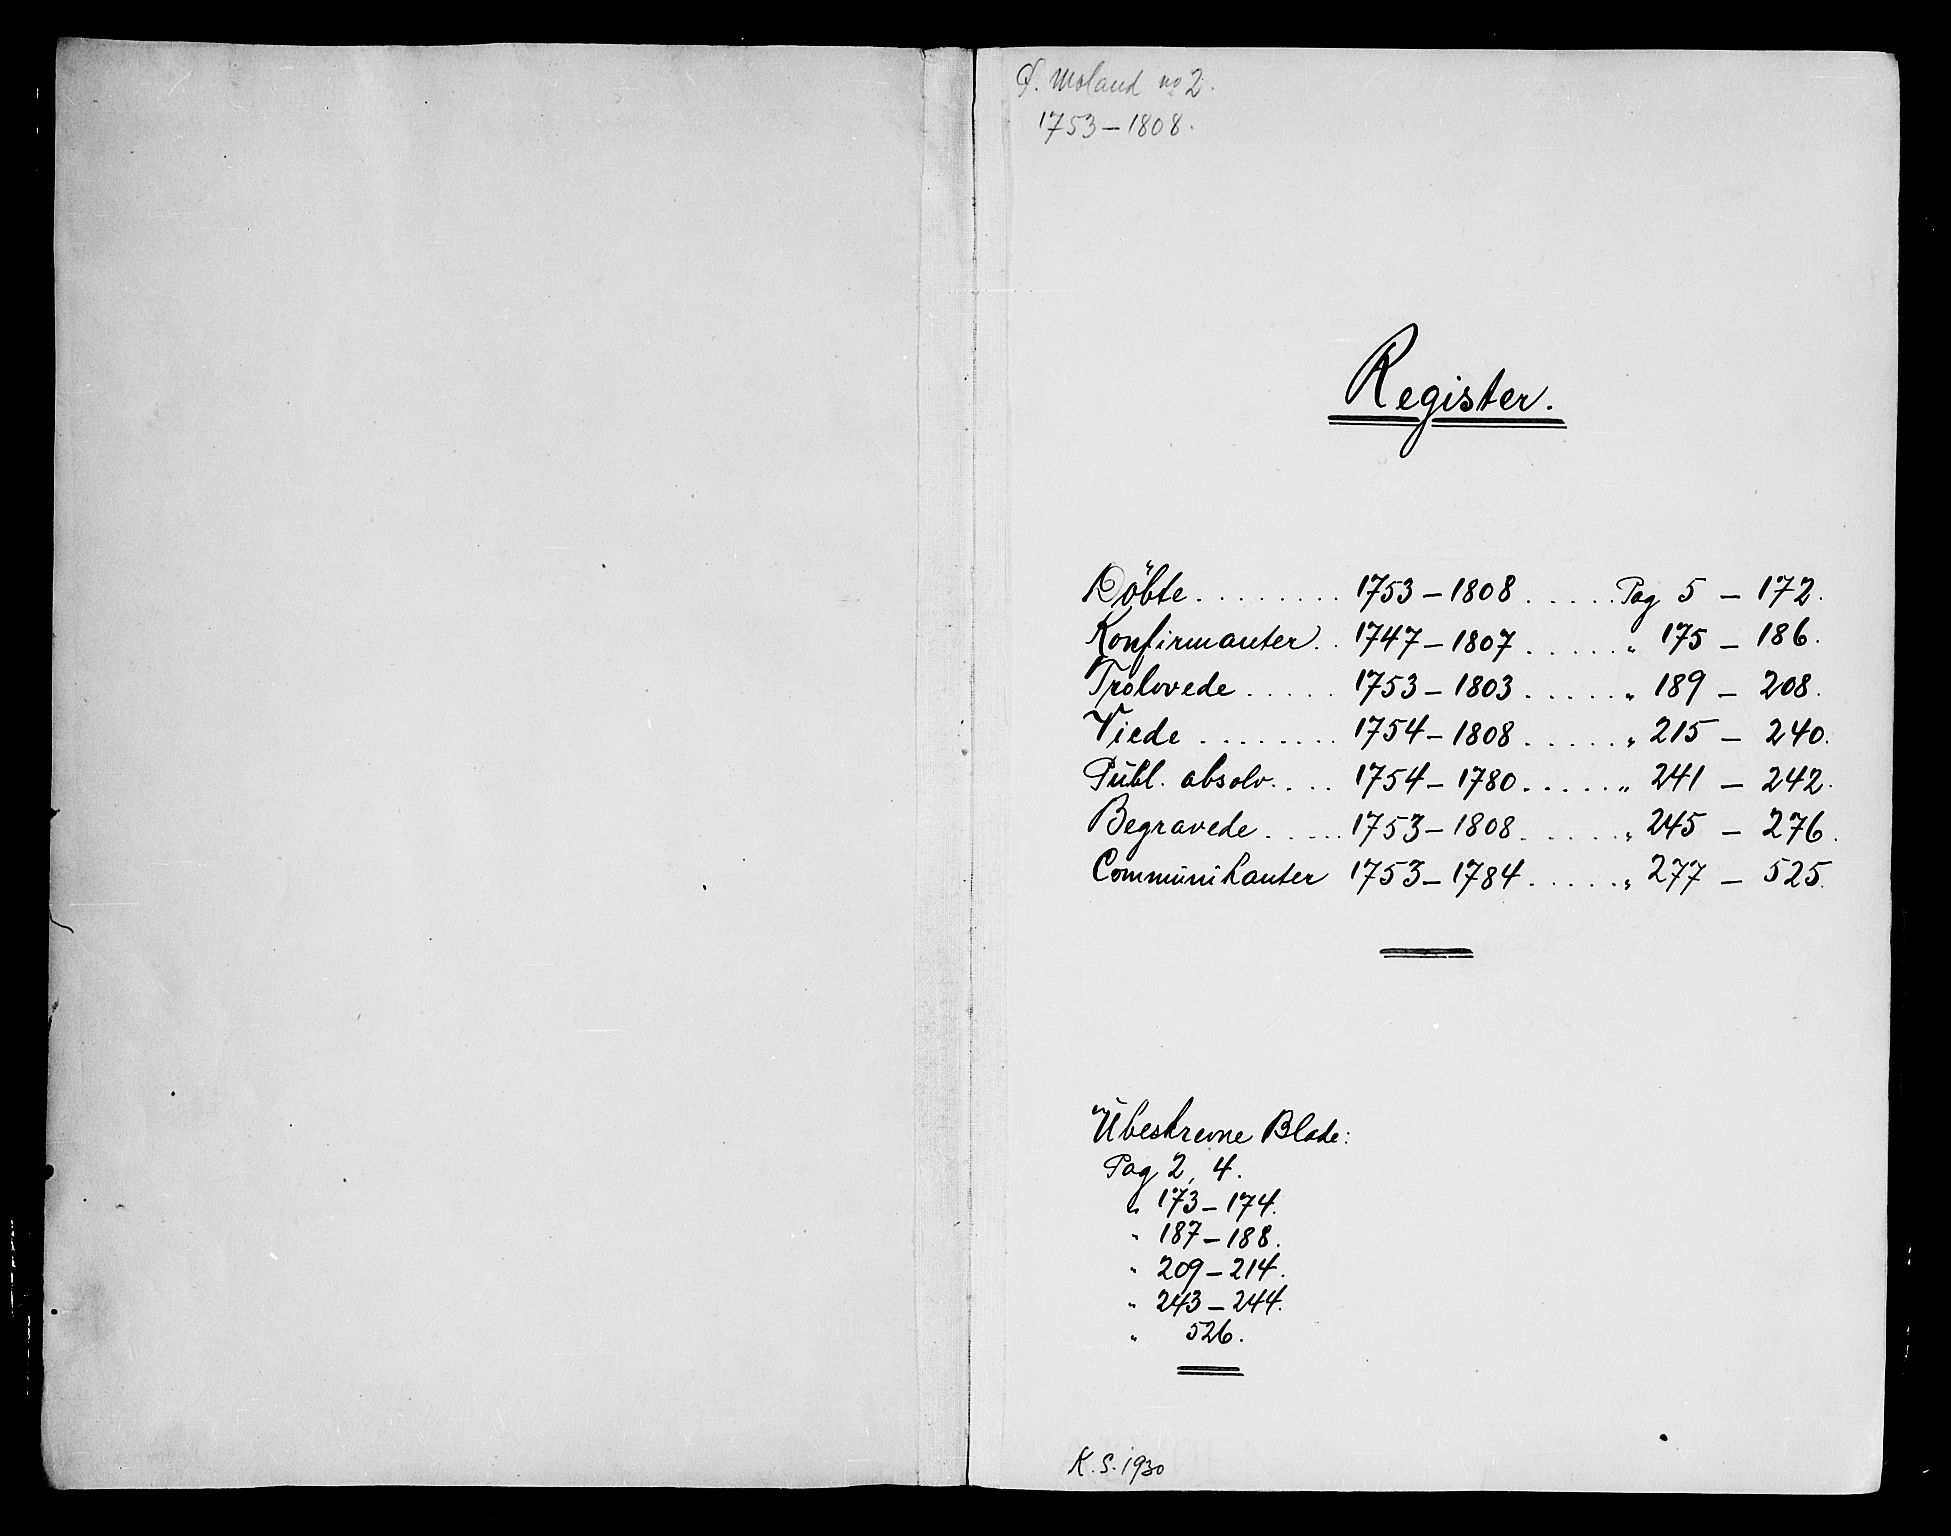 Ø. Moland no 2.
1753–1808.
Register.
Döbte ........ 1753–1808 ..... Pag 5 – 172.
Konfirmanter .. 1747–1807 ..... „ 175 – 186.
Trolovede ..... 1753–1803 ..... „ 189 – 208.
Viede ........ 1754–1808 ..... „ 215 – 240.
Publ. absolv. ... 1754–1780 ..... „ 241 – 242.
Begravede ..... 1753–1808 ..... „ 245 – 276.
Communikanter 1753–1784 ..... „ 277 – 525.
Ubeskrevne Blade:
Pag 2, 4.
„ 173–174.
„ 187–188.
„ 209–214.
„ 243–244.
„ 526.
K. S. 1930